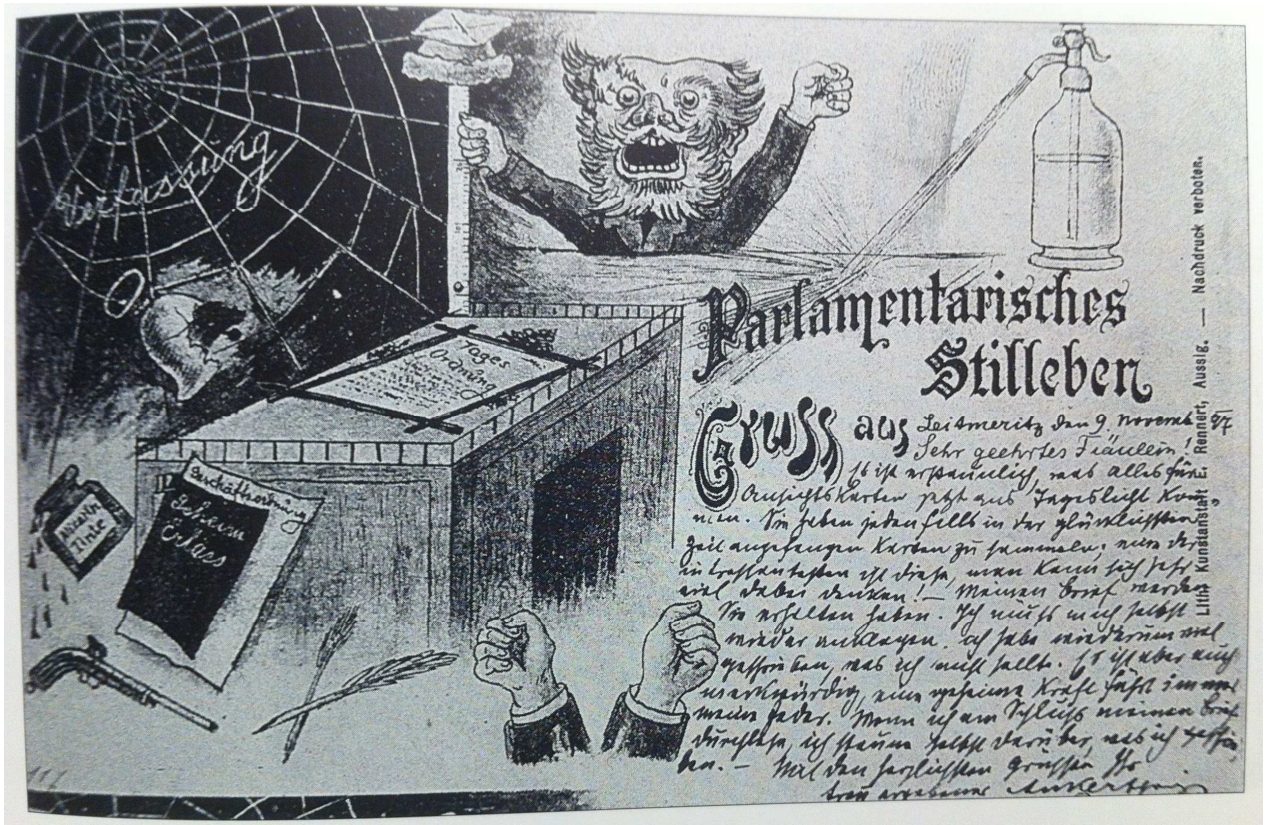 Verfassung
Tages
Ordnung
Geschäftsordnung
Geheim
Erlass
Tinte
Parlamentarisches
Stilleben
Gruss aus Leitmeritz den 9. Novemb. 97
Sehr geehrtes Fräulein!
Es ist erstaunlich, was alles für
Ansichtskarten jetzt ans Tageslicht kom-
men. Sie haben jedenfalls in der glücklichsten
Zeit angefangen Karten zu sammeln; eine der
interessantesten ist diese, man kann sich sehr
viel dabei denken! — Meinen Brief werden
Sie erhalten haben. Ich muss mich selbst
wieder anklagen. Ich habe wiederum viel
geschrieben, was ich nicht sollte. Es ist aber auch
merkwürdig, eine geheime Kraft führt immer
meine Feder. Wenn ich am Schluss meinen Brief
durchlese, ich staune selbst darüber, was ich geschrie-
ben. — Mit den herzlichsten Grüssen Ihr
treu ergebener
Lith. Kunstanstalt E. Rennert, Aussig. — Nachdruck verboten.